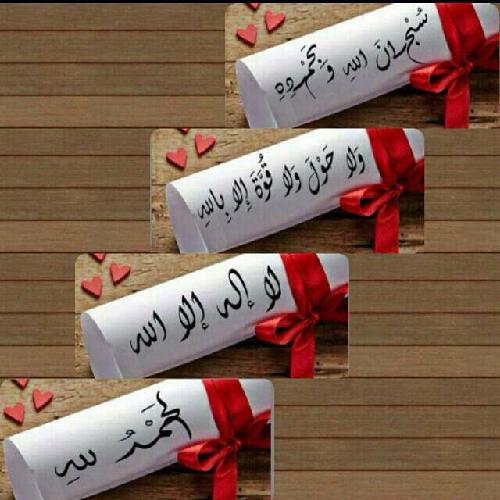 سُبْحَانَ اللهِ وَ بِحَمْدِهِ
وَلَا حَوْلَ وَلَا قُوَّةَ إِلا بِاللهِ
لا إله إلا الله
لحَمْدُ لله